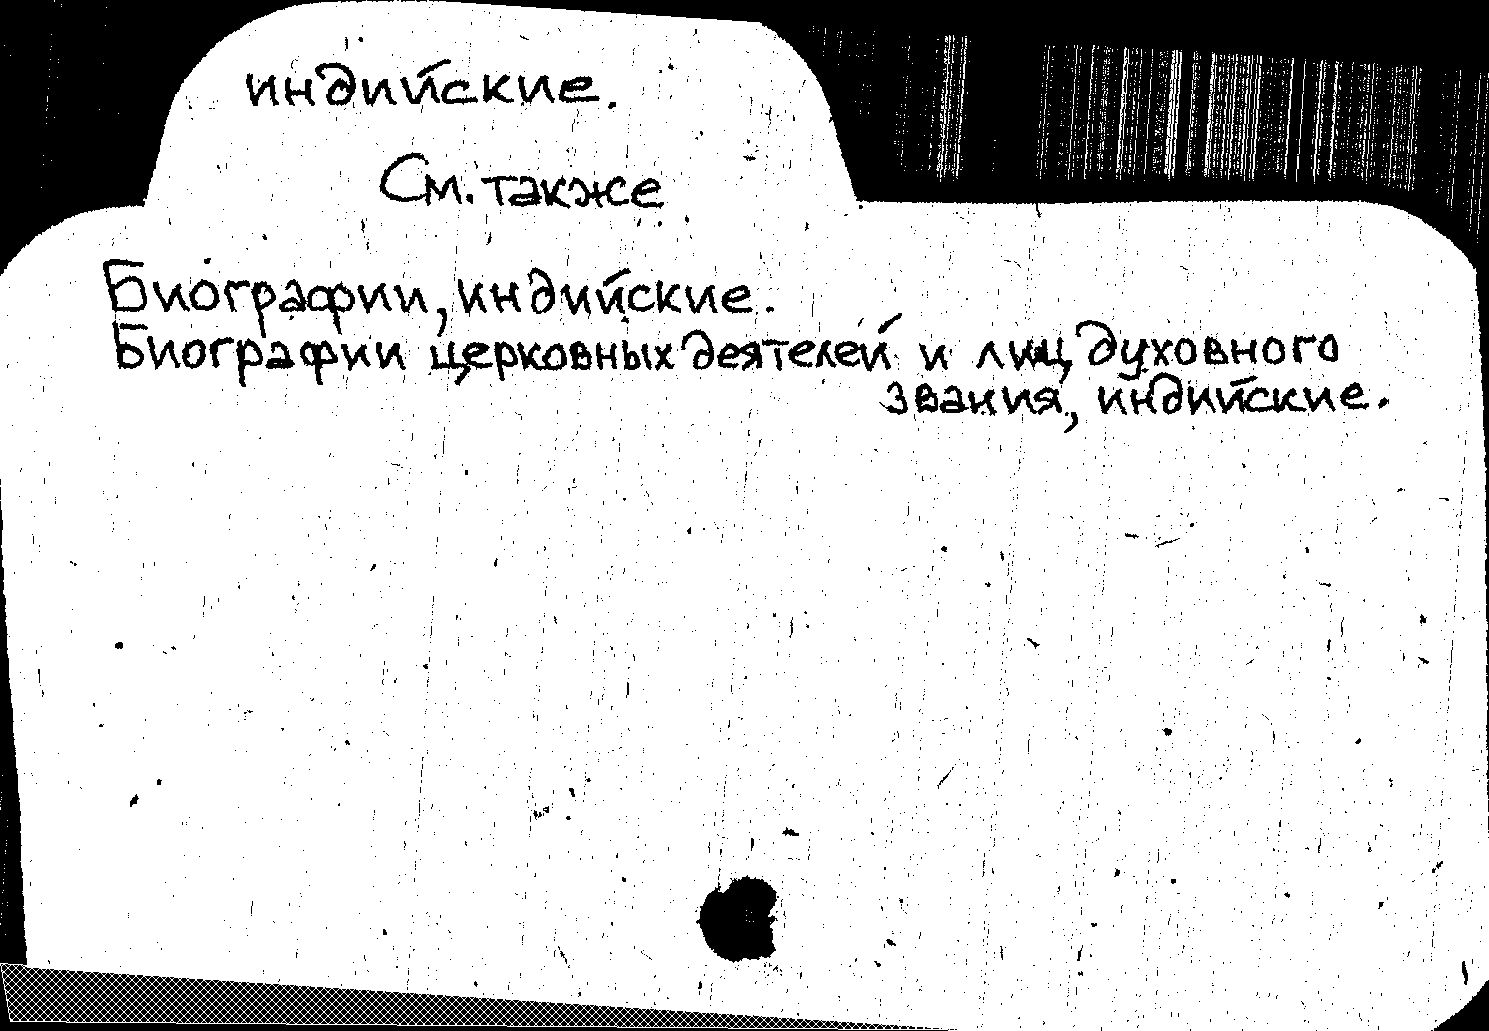 индийские.
См. также
Биографии, индийские.
Биографии церковных деятелей и лиц духовного
звания, индийские.